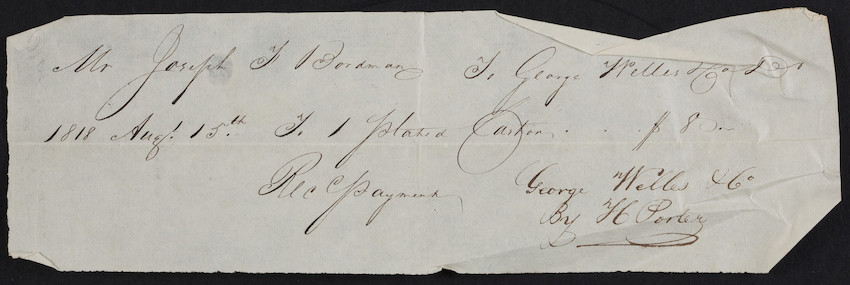 Mr Joseph T Bordman To George Welles & Co Dr
1818 Augt. 15th. To 1 plated Castor . . . $ 8.–
Recd payment George Welles & Co
By H Porter